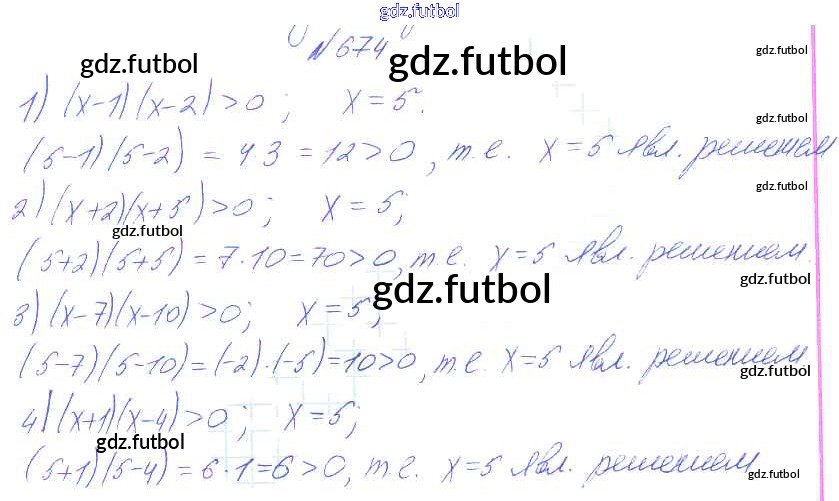 gdz.futbol
N 674
gdz.futbol gdz.futbol gdz.futbol
1) (x-1)(x-2)>0; x=5.
gdz.futbol
(5-1)(5-2) = 4·3 = 12>0, т.е. x=5 явл. решением
gdz.futbol
2) (x+2)(x+5)>0; x=5;
gdz.futbol
(5+2)(5+5) = 7·10=70>0, т.е. x=5 явл. решением.
gdz.futbol gdz.futbol
3) (x-7)(x-10)>0; x=5;
(5-7)(5-10)=(-2)·(-5)=10>0, т.е. x=5 явл. решением
gdz.futbol
4) (x+1)(x-4)>0; x=5;
gdz.futbol
(5+1)(5-4) = 6·1=6>0, т.е. x=5 явл. решением
gdz.futbol